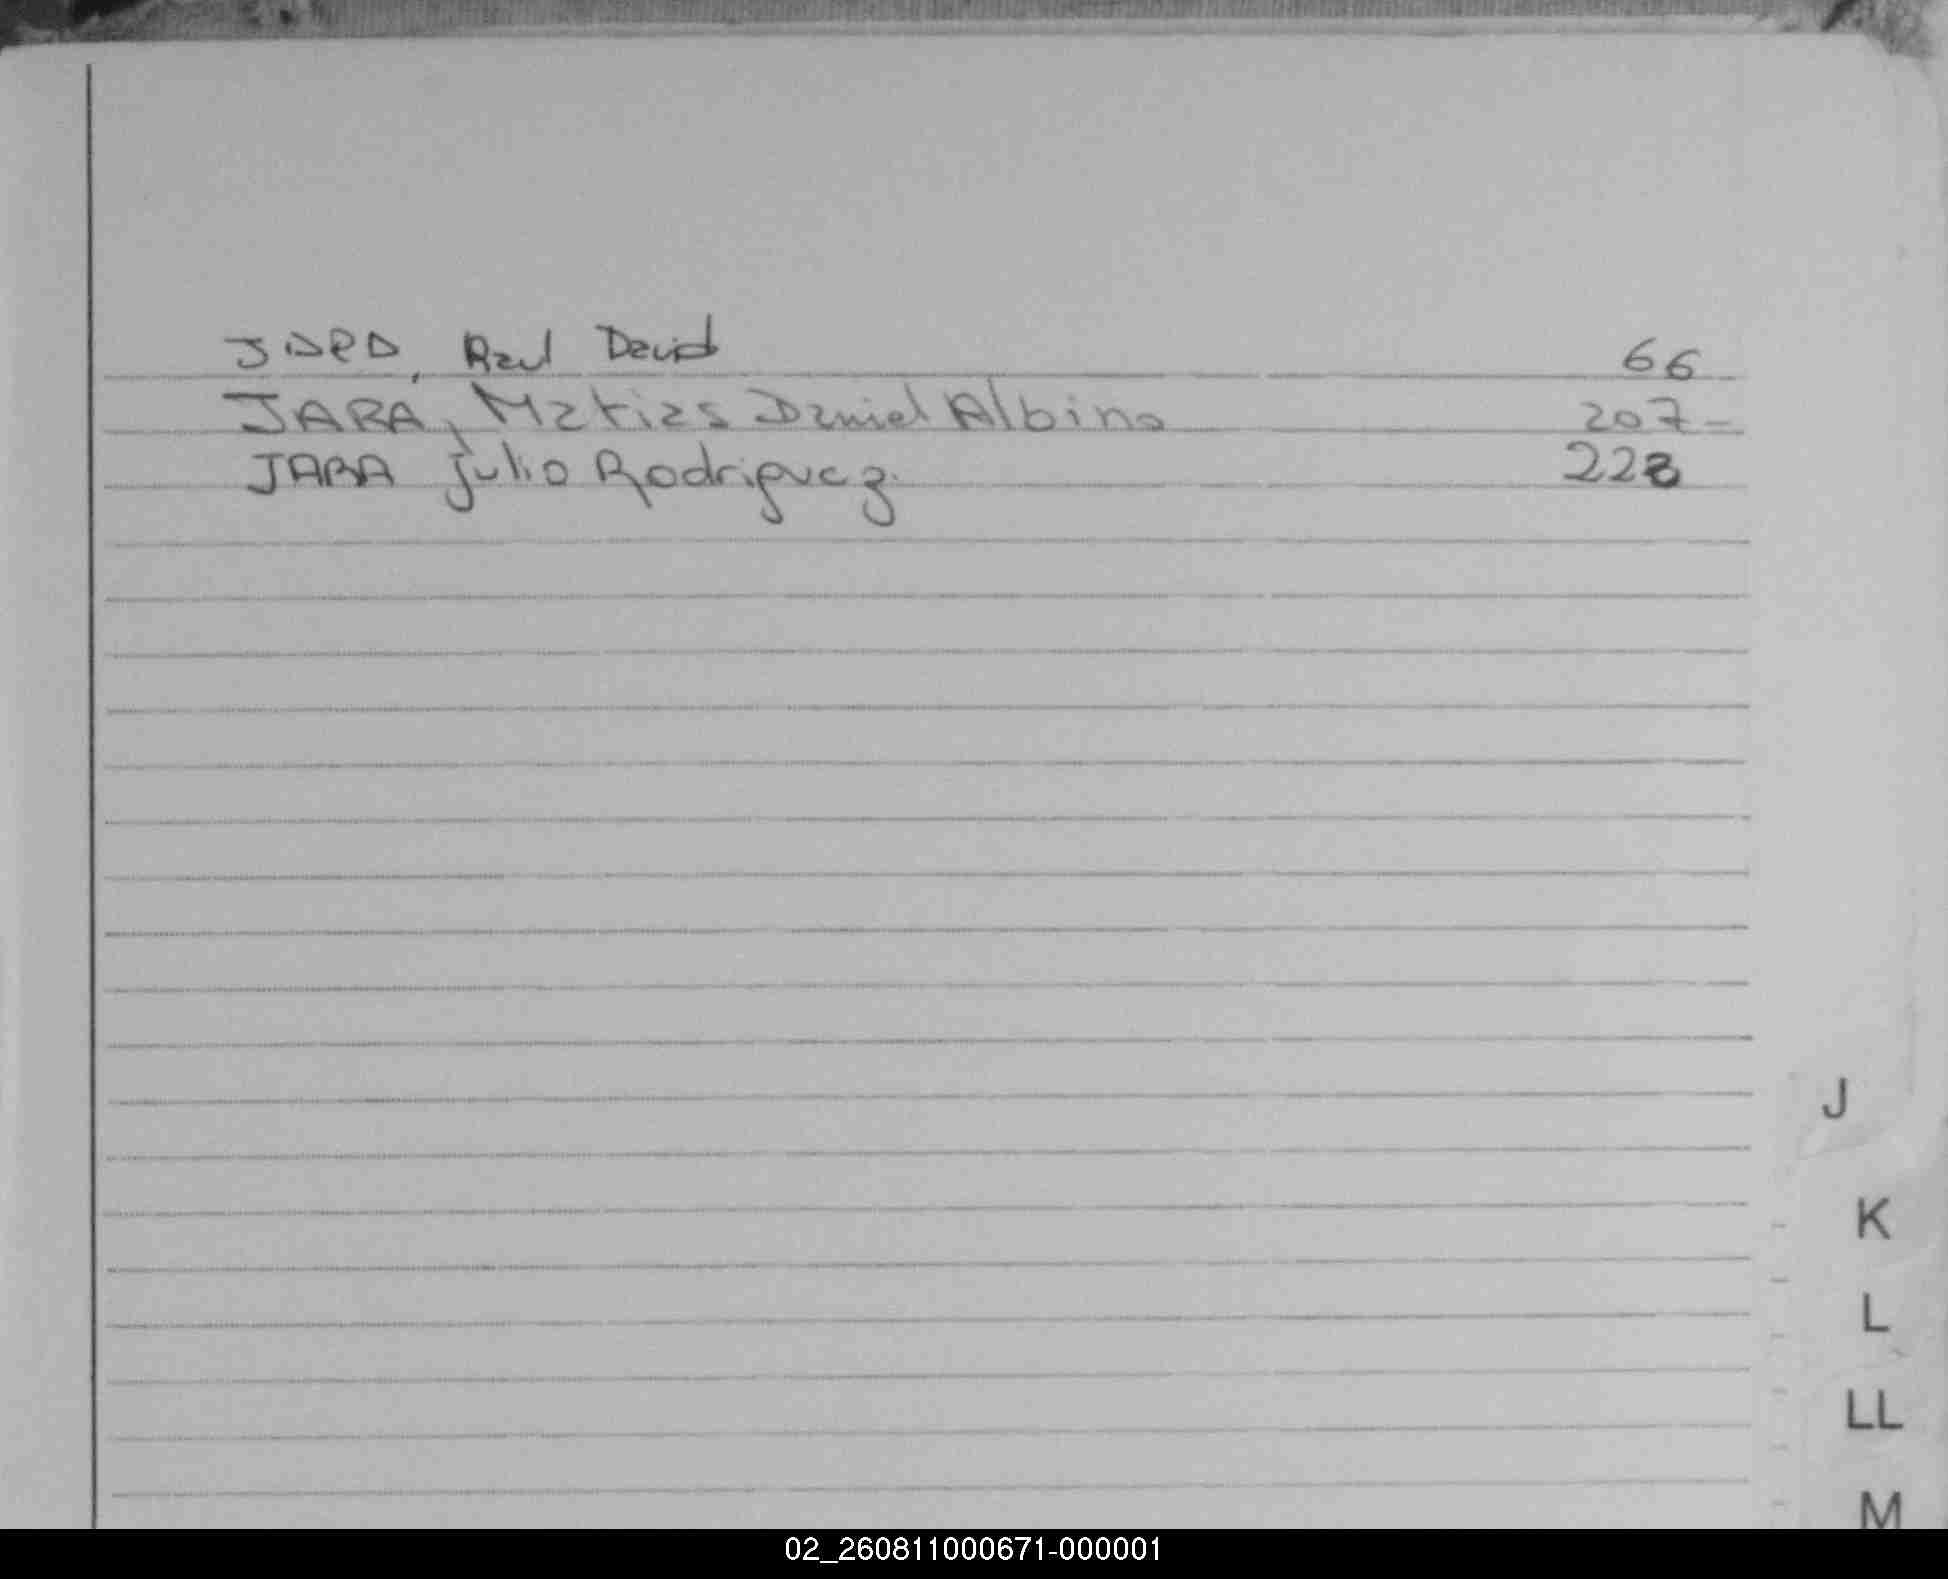 JARA, Raul David 66
JARA, Matias Daniel Albino 207-
JARA Julio Rodriguez. 228
J
K
L
LL
M
02_260811000671-000001